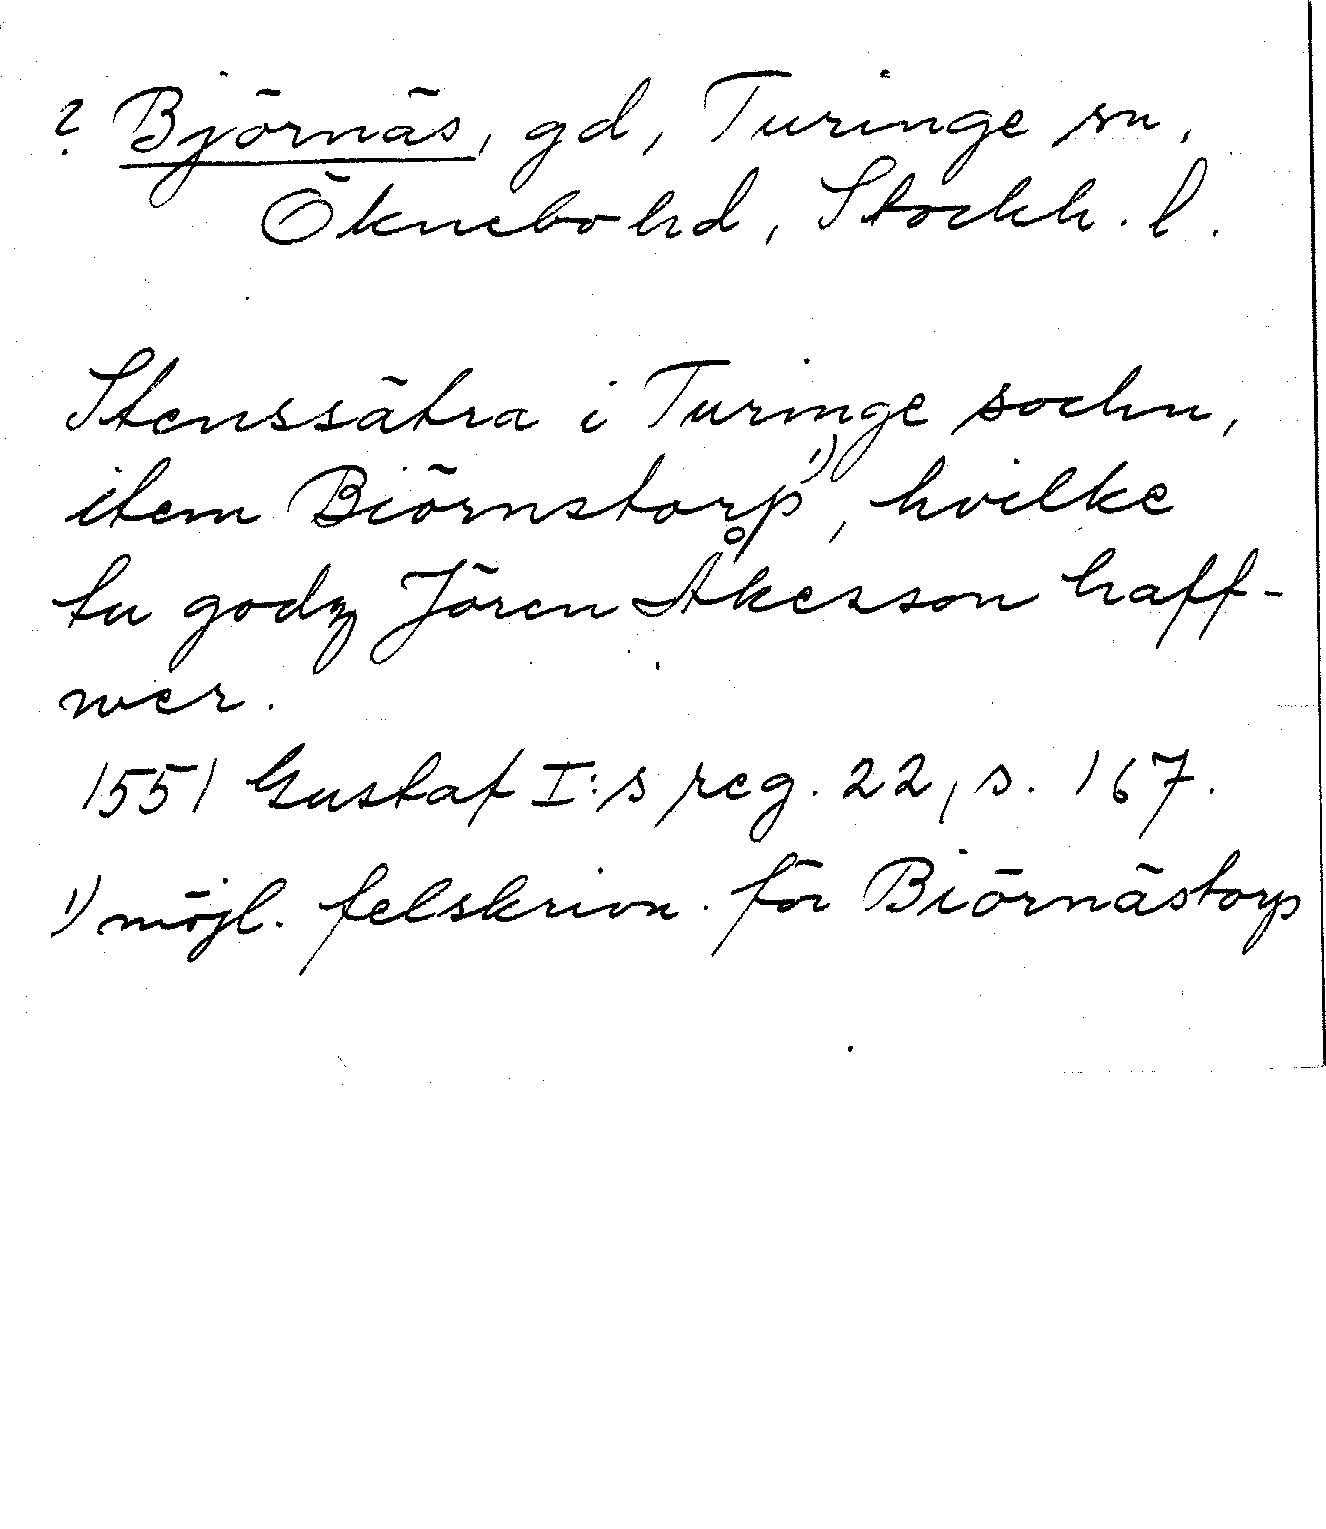 ? Björnäs, gd, Turinge sn,
Öknebo hd, Stockh. l.
Stenssätra i Turinge sochn,
item Biörnstorp¹⁾, hvilke
tu godz Jören Åkesson haff-
wer.
1551 Gustaf I:s reg. 22, s. 167.
¹⁾ möjl. felskrivn. för Biörnästorp